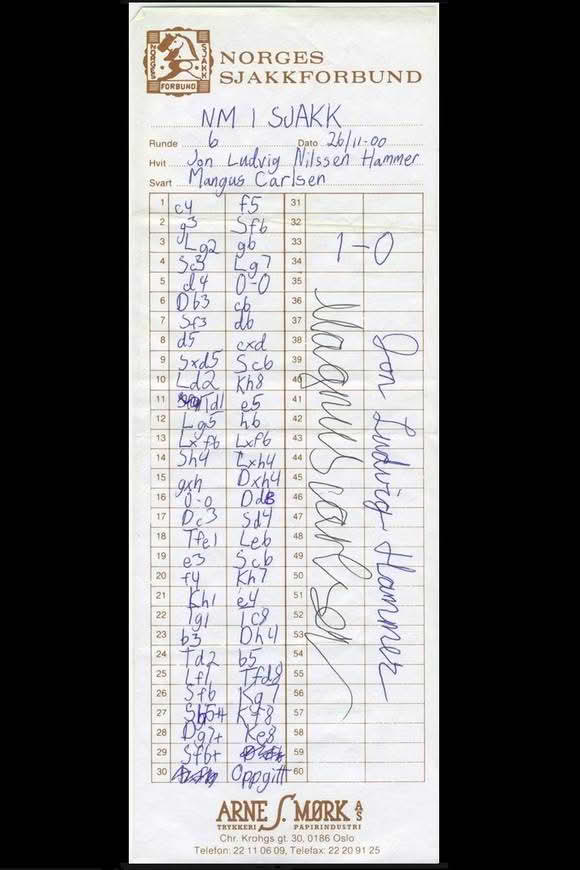 NORGES SJAKK FORBUND
NORGES
SJAKKFORBUND
NM I SJAKK
Runde 6 Dato 26/11-00
Hvit Jon Ludvig Nilssen Hammer
Svart Mangus Carlsen
1 c4 f5 31
2 g3 Sf6 32
3 Lg2 g6 33
4 Sc3 Lg7 34
5 d4 0-0 35
6 Db3 c6 36
7 Sf3 d6 37
8 d5 cxd 38
9 Sxd5 Sc6 39
10 Ld2 Kh8 40
11 Td1 e5 41
12 Lg5 h6 42
13 Lxf6 Lxf6 43
14 Sh4 Lxh4 44
15 gxh Dxh4 45
16 0-0 Dd8 46
17 Dc3 Sd4 47
18 Tfe1 Le6 48
19 e3 Sc6 49
20 f4 Kh7 50
21 Kh1 e4 51
22 Tg1 Tc8 52
23 b3 Dh4 53
24 Td2 b5 54
25 Lf1 Tfd8 55
26 Sf6 Kg7 56
27 Kf8 57
28 Dg7+ Ke8 58
29 Sf6+ 59
30 Oppgitt 60
1-0
Magnus Carlsen
Jon Ludvig Hammer
ARNE S. MØRK AS
TRYKKERI PAPIRINDUSTRI
Chr. Krohgs gt. 30, 0186 Oslo
Telefon: 22 11 06 09, Telefax: 22 20 91 25